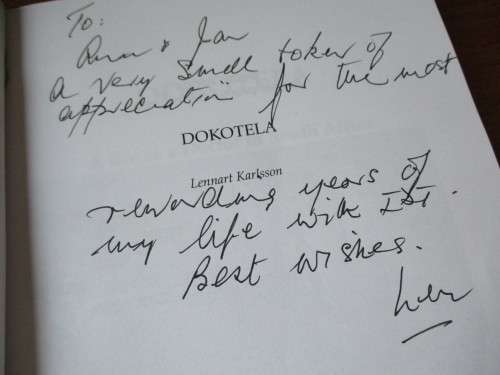 To:
& Jan
a very small token of
appreciation for the most
DOKOTELA
Lennart Karlsson
rewarding years of
my life with IST.
Best wishes.
Len